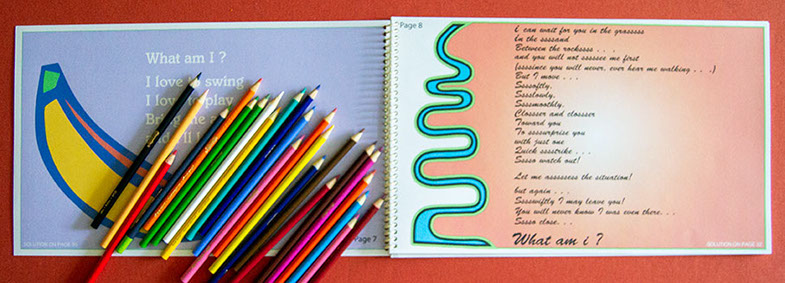 What am I ?
I love to swing
I love to play
Bring me a
and I'll
Page 7
SOLUTION ON PAGE
Page 8
I can wait for you in the grosssss
In the ssssand
Between the rockssss . . .
and you will not ssssee me first
(ssssince you will never, ever hear me walking . . .)
But I move . . .
Ssssoftly,
Sssslowly,
Sssmoothly,
Clossser and clossser
Toward you
To sssssurprise you
with just one
Quick sssstrike . . .
Sssso watch out!
Let me asssssess the situation!
but again . . .
Ssssswiftly I may leave you!
You will never know I was even there. . .
Sssso close. . .
What am i ?
SOLUTION ON PAGE